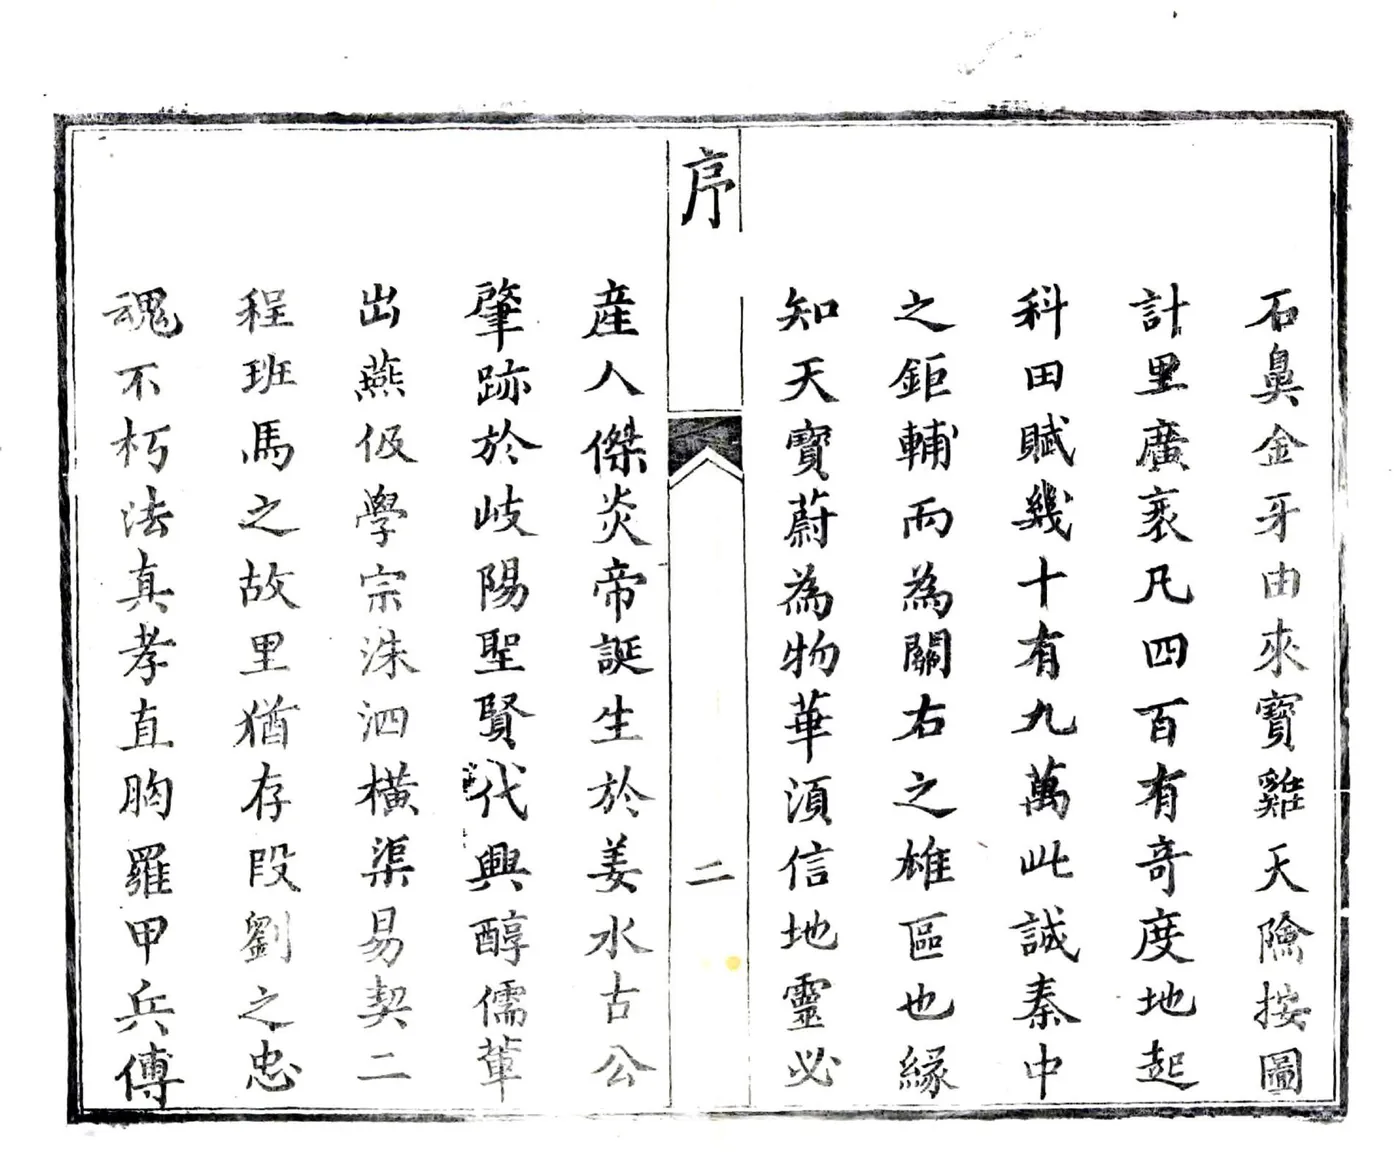 石鼻金牙由來寳雞天險按圖
計里廣袤凡四百有奇度地起
科田賦幾十有九萬此誠秦中
之鉅輔而為關右之雄區也緣
知天寳蔚為物華湏信地靈必
序
二
産人傑炎帝誕生於姜水古公
肇跡於岐陽聖賢代興醇儒輩
出燕伋學宗洙泗橫渠易契二
程班馬之故里猶存段劉之忠
魂不朽法真孝直胸羅甲兵傳